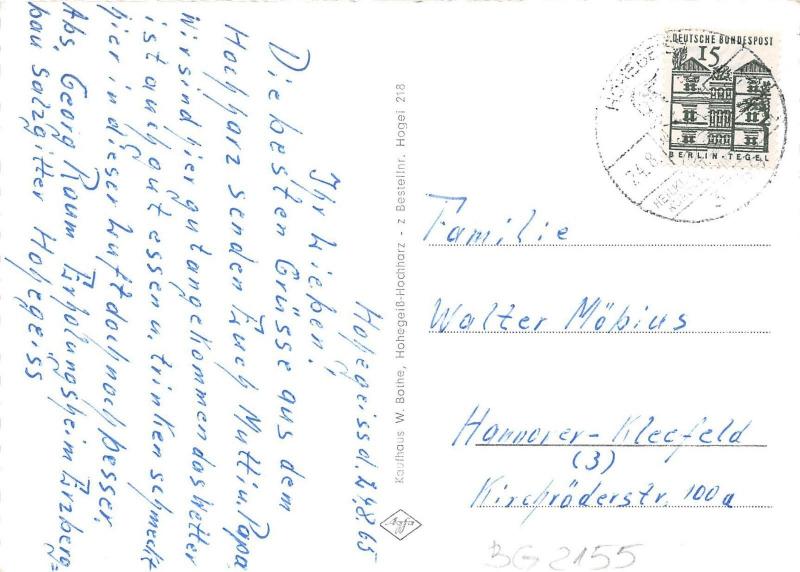 Hohegeiss d. 24.8.65
Ihr Lieben!
Die besten Grüsse aus dem
Hochharz senden Euch Mutti u. Papa
Wir sind hier gut angekommen das Wetter
ist auch gut essen u. trinken schmeckt
hier in dieser Luft doch noch besser.
Abs. Georg Raum Erholungsheim Erzberg=
bau Salzgitter Hohegeiss
Kaufhaus W. Bothe, Hohegeiß-Hochharz - z Bestellnr. Hogei 218
Agfa
DEUTSCHE BUNDESPOST
15
BERLIN-TEGEL
24.8.
Familie
Walter Möbius
Hannover-Kleefeld
(3)
Kirchröderstr. 100a
BG 2155